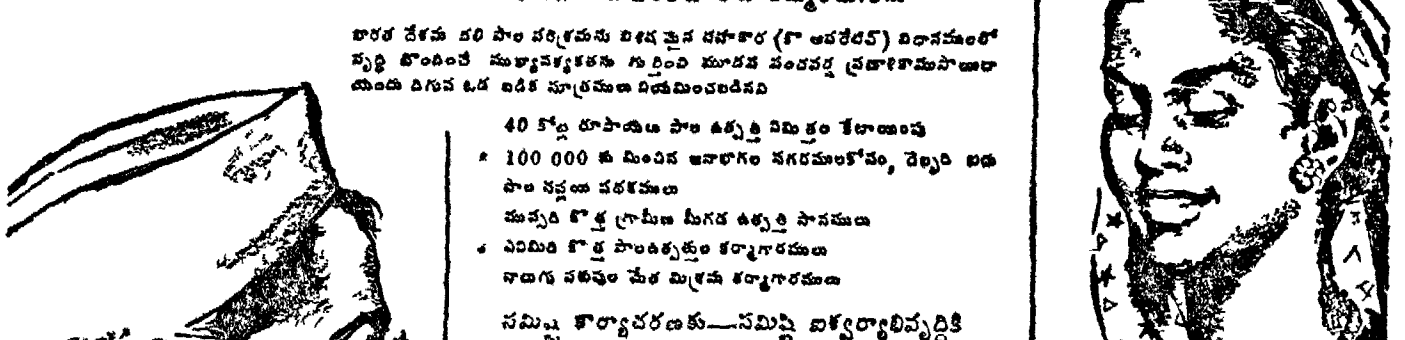 భారత దేశము దాని పాల పరిశ్రమను విశేష మైన సహకార (కో ఆపరేటివ్) విధానములలో
వృద్ధి పొందించే ముఖ్యావశ్యకతను గుర్తించి మూడవ పంచవర్ష ప్రణాళికాముసాయిదా
యందు దిగువ ఒడ బడిక సూత్రములు నియమించబడినవి
40 కోట్ల రూపాయలు పాల ఉత్పత్తి నిమిత్తం కేటాయింపు
* 100 000 కు మించిన జనాభాగల నగరములకోసం, డెబ్బది ఐదు
పాల సప్లయి పథకములు
ముప్పది కొత్త గ్రామీణ మీగడ ఉత్పత్తి స్థానములు
* ఎనిమిది కొత్త పాలఉత్పత్తుల కర్మాగారములు
నాలుగు పశువుల మేత మిశ్రమ కర్మాగారములు
సమిష్టి కార్యాచరణకు—సమిష్టి ఐశ్వర్యాభివృద్ధికి